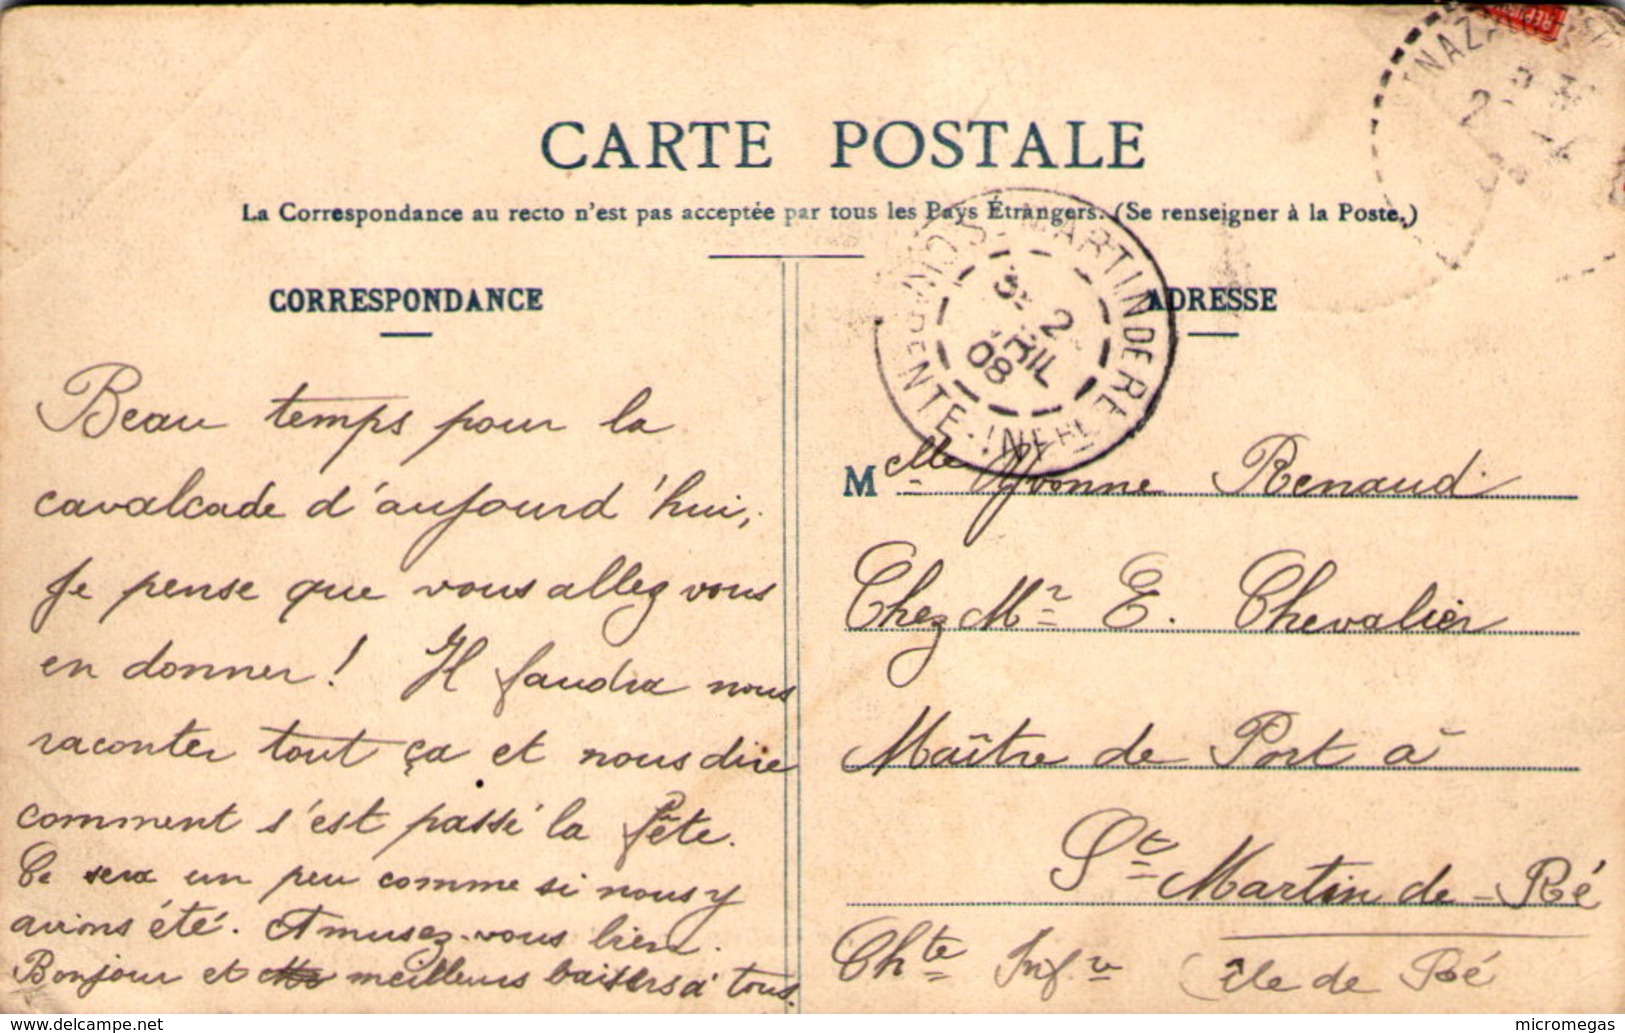 CARTE POSTALE
La Correspondance au recto n'est pas acceptée par tous les Pays Étrangers. (Se renseigner à la Poste.)
CORRESPONDANCE
Beau temps pour la
cavalcade d'aujourd'hui,
Je pense que vous allez vous
en donner! Il faudra nous
raconter tout ça et nous dire
comment s'est passé la fête.
Ce sera un peu comme si nous y
avions été. Amusez-vous bien.
Bonjour et meilleurs baisers à tous.
ADRESSE
Melle Yvonne Renaud
Chez Mr E. Chevalier
Maître de Port à
St Martin de-Ré
Chte Infre (île de Ré
MARTIN DE RE
ENTE-INFRE
2
RIL
08
NAZ
delcampe.net
micromegas